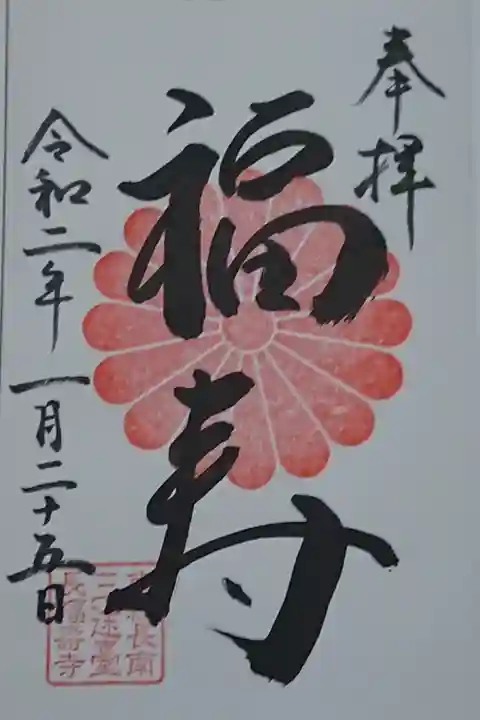 奉拝
福寿
令和二年一月二十五日
長福壽寺